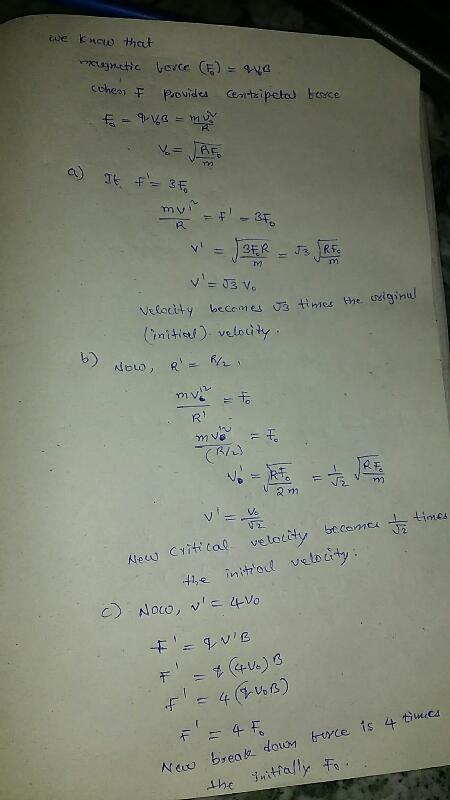 we know that
magnetic force (F₀) = qV₀B
when F provides centripetal force
F₀ = qV₀B = mV₀²/R
V₀ = √(RF₀/m)
a) If F' = 3F₀
mV'²/R = F' = 3F₀
V' = √(3F₀R/m) = √3 √(RF₀/m)
V' = √3 V₀
Velocity becomes √3 times the original
(initial) velocity.
b) Now, R' = R/2,
mV₀'²/R' = F₀
mV₀'²/(R/2) = F₀
V₀' = √(RF₀/2m) = 1/√2 √(RF₀/m)
V' = V₀/√2
New critical velocity becomes 1/√2 times
the initial velocity.
c) Now, V' = 4V₀
F' = qV'B
F' = q(4V₀)B
F' = 4(qV₀B)
F' = 4F₀
New break down force is 4 times
the initially F₀.